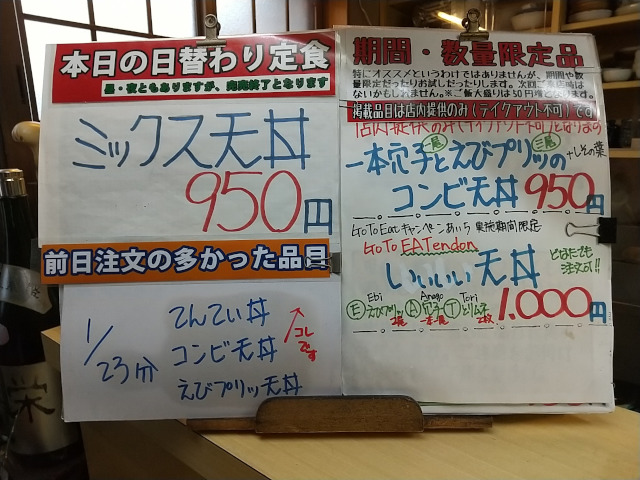 本日の日替わり定食
昼・夜ともありますが、完売終了となります
ミックス天丼
950円
前日注文の多かった品目
1/23分
てんてい丼
コンビ天丼
えびプリッツ天丼
コレです
期間・数量限定品
特にオススメというわけではありませんが、期間や数
量限定だったりお試しだったりします。次回ご来店時は
ないかもしれません。※ご飯大盛りは50円増となります
掲載品目は店内提供のみ(テイクアウト不可)です
店内提供のみ(テイクアウト不可)となります
一尾 三尾
一本穴子とえびプリッツの +しその葉
コンビ天丼 950円
GoToEatキャンペーンあいち 実施期間限定
GoTo EATendon
いいいい天丼 どなたでも
注文可!!
Ebi Anago Tori
Eえびプリッツ A穴子 Tとりムネ 1,000円
2尾 一本 2枚
栄